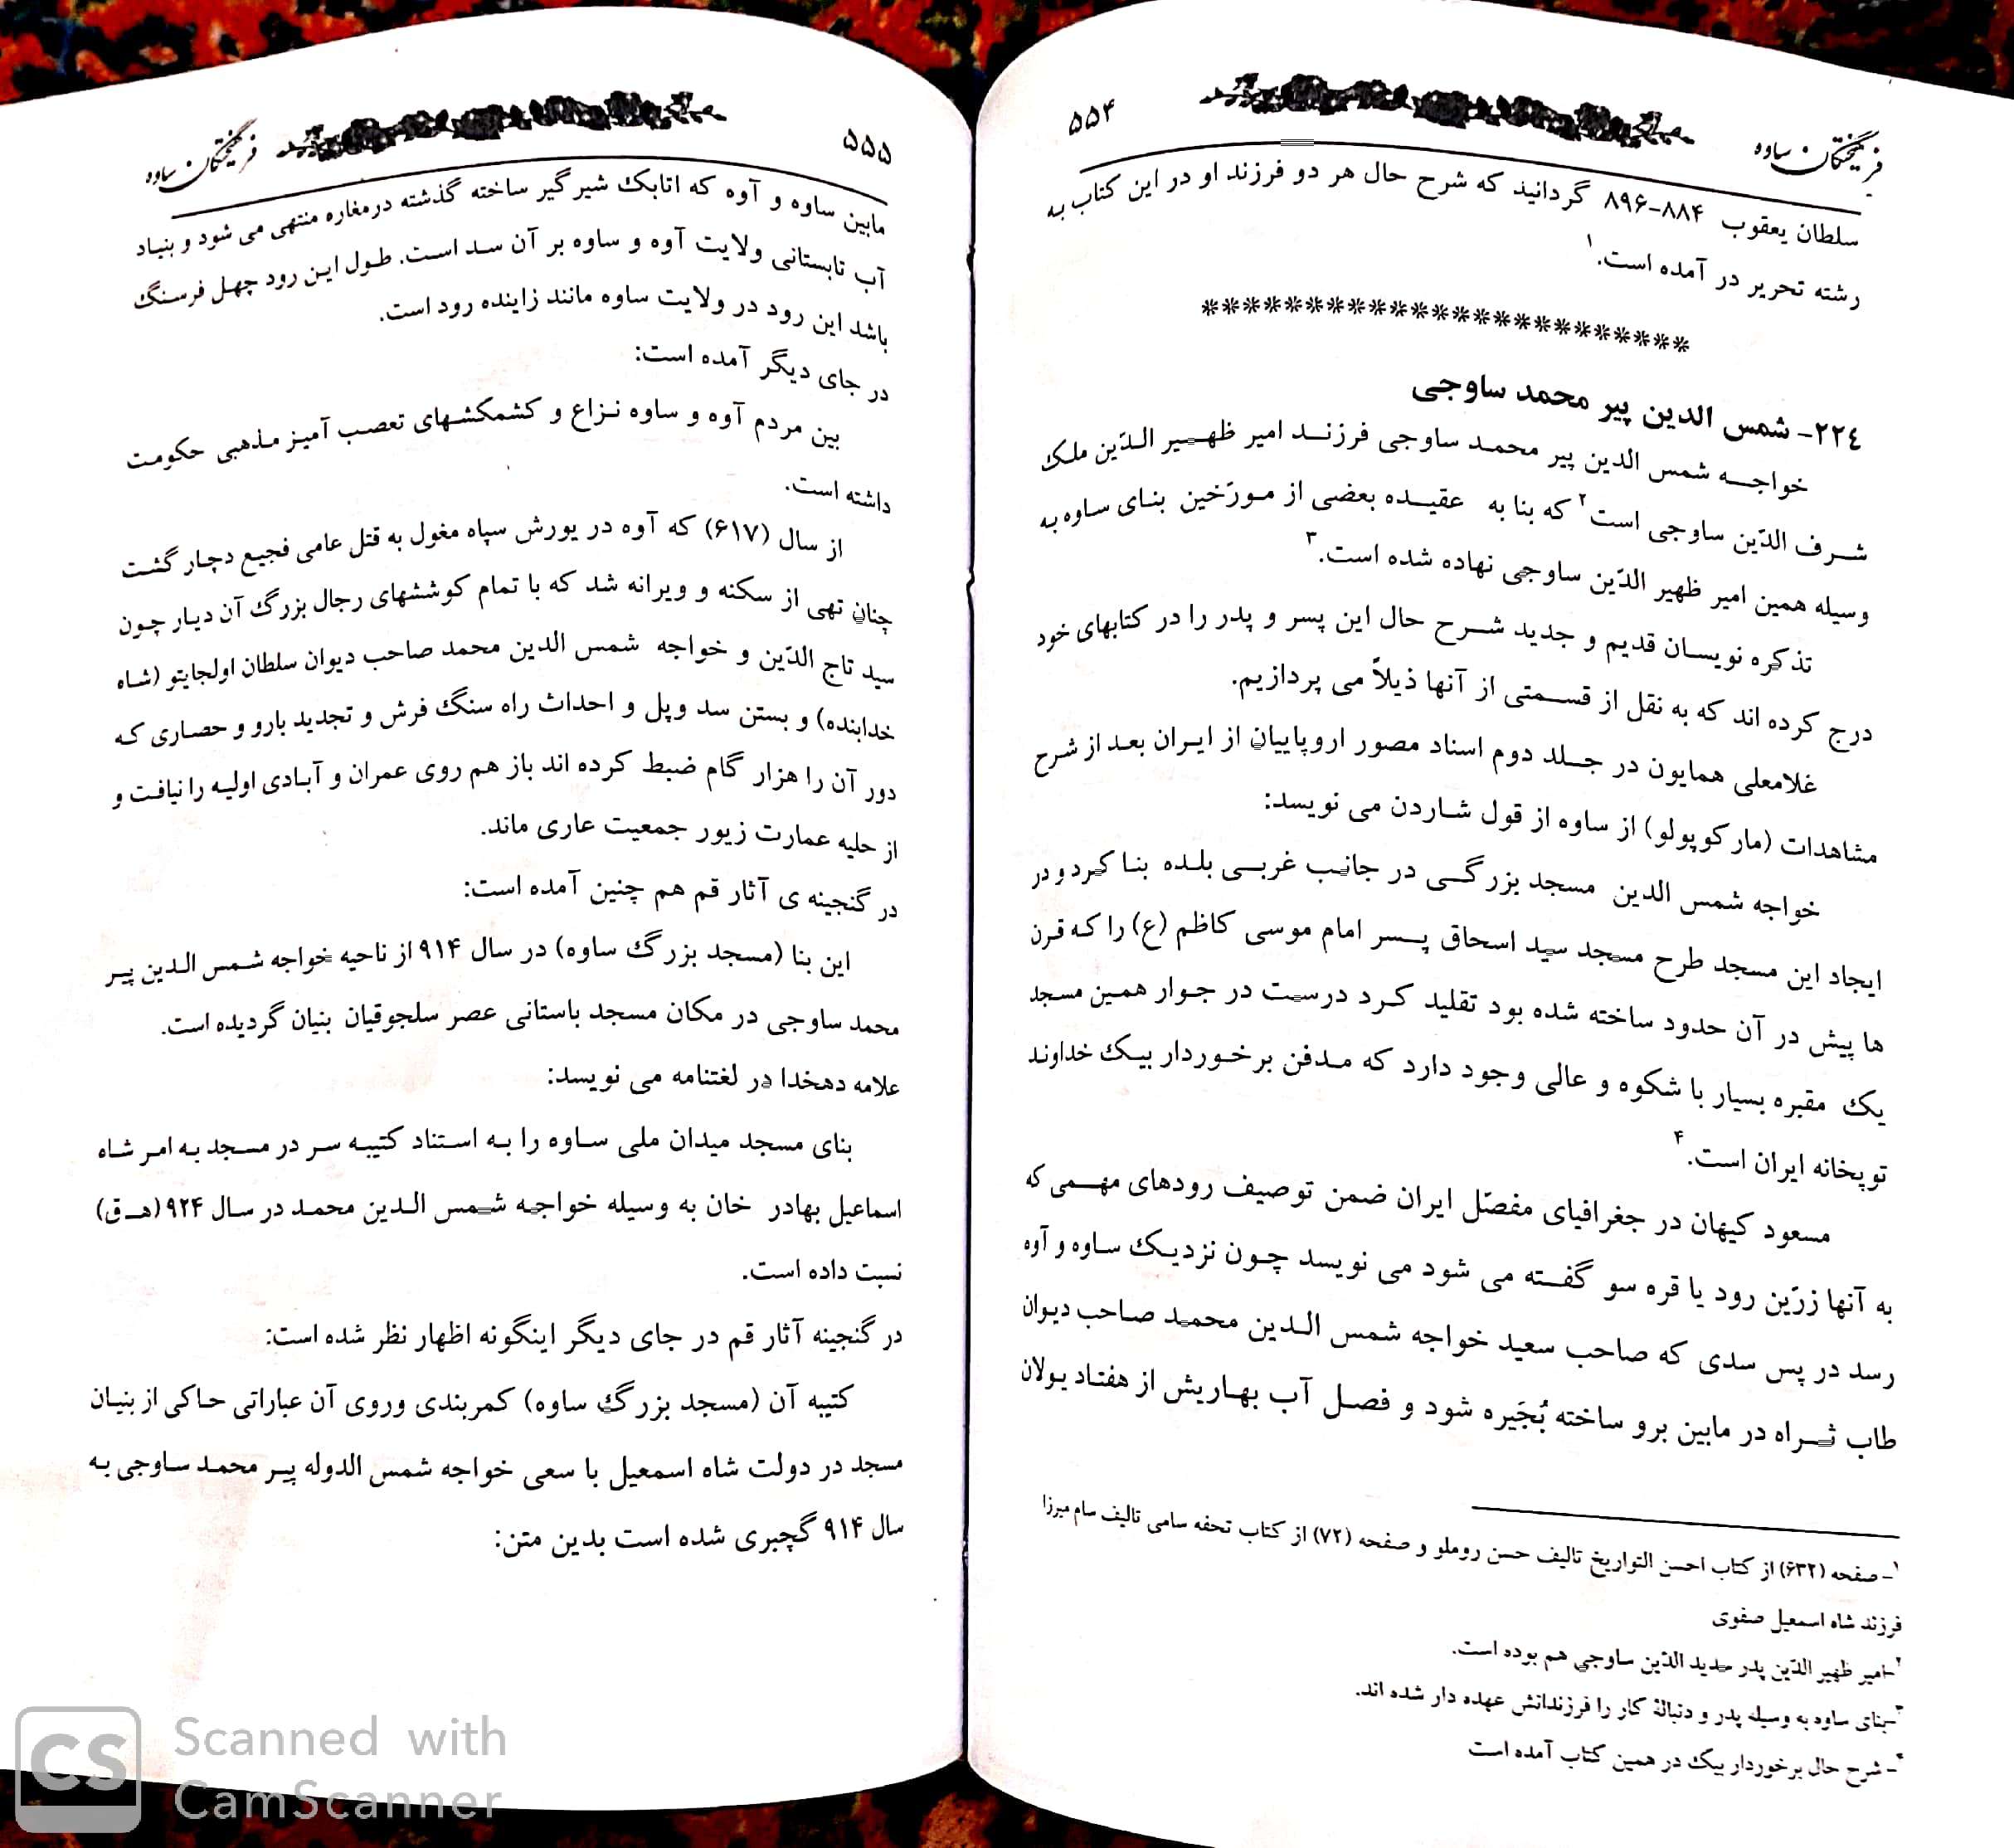 فرهیختگان ساوه
۵۵۴
سلطان یعقوب ۸۸۴-۸۹۶ گردانید که شرح حال هر دو فرزند او در این کتاب به
رشته تحریر در آمده است.۱
************************
۲۲۴- شمس الدین پیر محمد ساوجی
خواجه شمس الدین پیر محمد ساوجی فرزند امیر ظهیر الدّین ملک
شرف الدّین ساوجی است۲ که بنا به عقیده بعضی از مورّخین بنای ساوه به
وسیله همین امیر ظهیر الدّین ساوجی نهاده شده است.۳
تذکره نویسان قدیم و جدید شرح حال این پسر و پدر را در کتابهای خود
درج کرده اند که به نقل از قسمتی از آنها ذیلاً می پردازیم.
غلامعلی همایون در جلد دوم اسناد مصور اروپاییان از ایران بعد از شرح
مشاهدات (مارکوپولو) از ساوه از قول شاردن می نویسد:
خواجه شمس الدین مسجد بزرگی در جانب غربی بلده بنا کرد و در
ایجاد این مسجد طرح مسجد سید اسحاق پسر امام موسی کاظم (ع) را که قرن
ها پیش در آن حدود ساخته شده بود تقلید کرد درست در جوار همین مسجد
یک مقبره بسیار با شکوه و عالی وجود دارد که مدفن برخوردار بیک خداوند
توپخانه ایران است.۴
مسعود کیهان در جغرافیای مفصّل ایران ضمن توصیف رودهای مهمی که
به آنها زرّین رود یا قره سو گفته می شود می نویسد چون نزدیک ساوه و آوه
رسد در پس سدی که صاحب سعید خواجه شمس الدین محمد صاحب دیوان
طاب ثراه در مابین برو ساخته بُجَیره شود و فصل آب بهاریش از هفتاد یولان
۱- صفحه (۶۳۲) از کتاب احسن التواریخ تالیف حسن روملو و صفحه (۷۲) از کتاب تحفه سامی تالیف سام میرزا
فرزند شاه اسمعیل صفوی
۲-امیر ظهیر الدّین پدر سدید الدّین ساوجی هم بوده است.
۳-بنای ساوه به وسیله پدر و دنبالهٔ کار را فرزندانش عهده دار شده اند.
۴- شرح حال برخوردار بیگ در همین کتاب آمده است
۵۵۵
فرهیختگان ساوه
مابین ساوه و آوه که اتابک شیرگیر ساخته گذشته درمغاره منتهی می شود و بنیاد
آب تابستانی ولایت آوه و ساوه بر آن سد است. طول این رود چهل فرسنگ
باشد این رود در ولایت ساوه مانند زاینده رود است.
در جای دیگر آمده است:
بین مردم آوه و ساوه نزاع و کشمکشهای تعصب آمیز مذهبی حکومت
داشته است.
از سال (۶۱۷) که آوه در یورش سپاه مغول به قتل عامی فجیع دچار گشت
چنان تهی از سکنه و ویرانه شد که با تمام کوششهای رجال بزرگ آن دیار چون
سید تاج الدّین و خواجه شمس الدین محمد صاحب دیوان سلطان اولجایتو (شاه
خدابنده) و بستن سد وپل و احداث راه سنگ فرش و تجدید بارو و حصاری که
دور آن را هزار گام ضبط کرده اند باز هم روی عمران و آبادی اولیه را نیافت و
از حلیه عمارت زیور جمعیت عاری ماند.
در گنجینه ی آثار قم هم چنین آمده است:
این بنا (مسجد بزرگ ساوه) در سال ۹۱۴ از ناحیه خواجه شمس الدین پیر
محمد ساوجی در مکان مسجد باستانی عصر سلجوقیان بنیان گردیده است.
علامه دهخدا در لغتنامه می نویسد:
بنای مسجد میدان ملی ساوه را به استناد کتیبه سر در مسجد به امر شاه
اسماعیل بهادر خان به وسیله خواجه شمس الدین محمد در سال ۹۲۴ (هـ ق)
نسبت داده است.
در گنجینه آثار قم در جای دیگر اینگونه اظهار نظر شده است:
کتیبه آن (مسجد بزرگ ساوه) کمربندی وروی آن عباراتی حاکی از بنیان
مسجد در دولت شاه اسمعیل با سعی خواجه شمس الدوله پیر محمد ساوجی به
سال ۹۱۴ گچبری شده است بدین متن:
CS
Scanned with
CamScanner